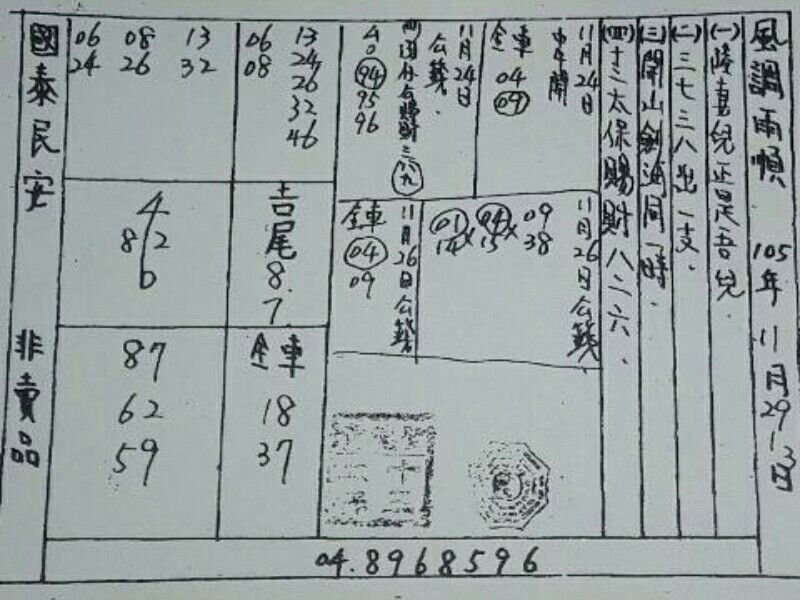 風調雨順 105年11月29-3日
(一)
正是吾兒
(二)三七三八出一支.
(三)開山劍
同一時.
(四)十二太保賜財八二六.
11月24日
中午開
金車
04
09
11月24日
公籤.
40
94
95
96
11月26日公籤
01 04 09
14 × 15 × 38
11月26日公籤
金車
04
09
13
24
26
32
46
06
08
06 08 13
24 26 32
吉尾8.7.
4
8 2
0
金車
18
37
87
62
59
國泰民安 非賣品
04.8968596